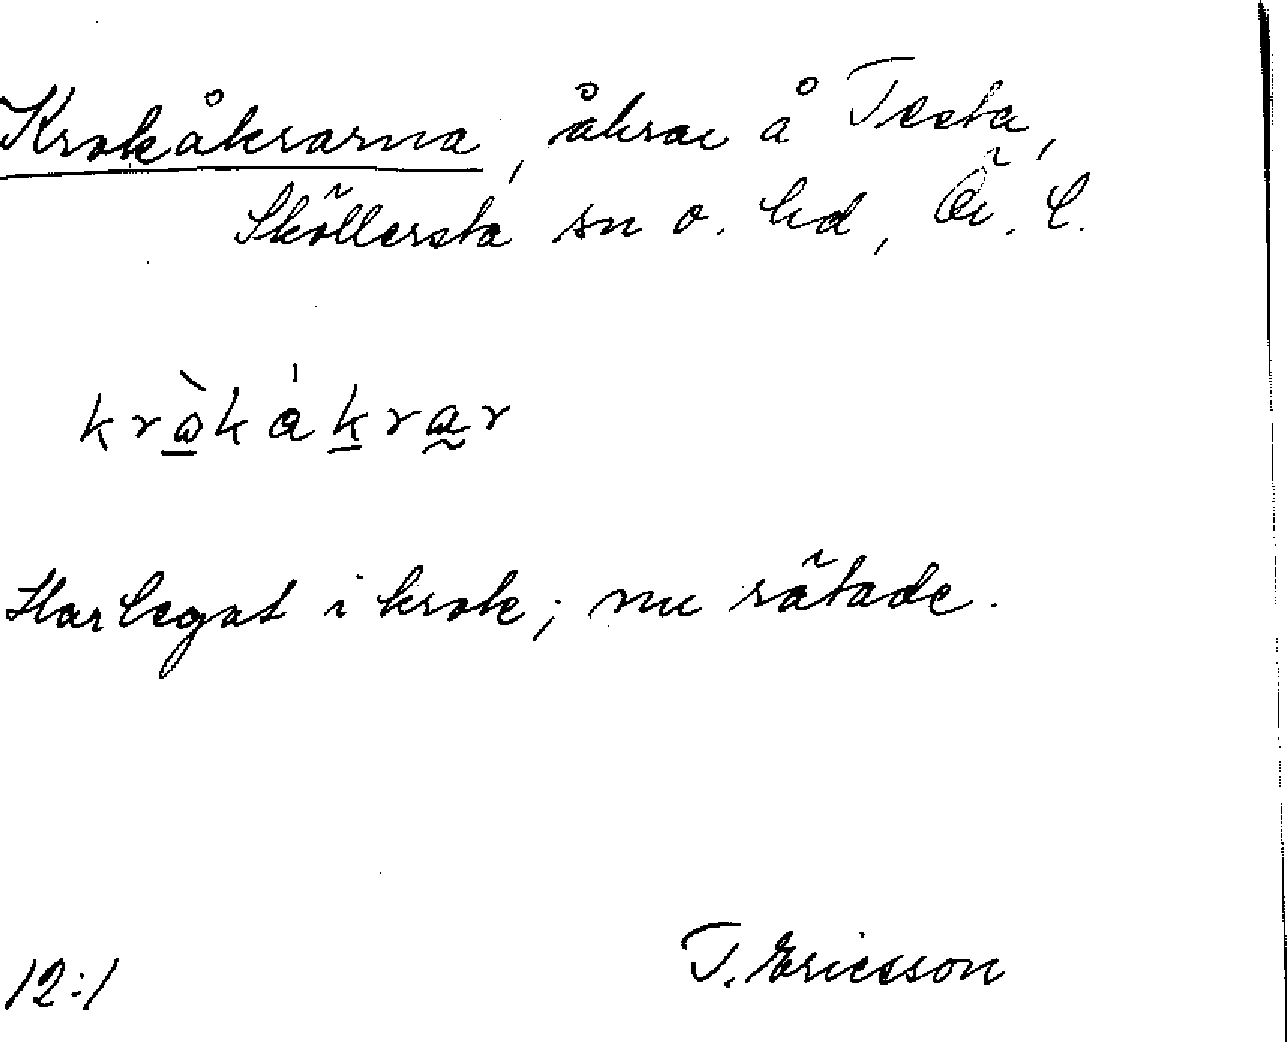 Krokåkrarna, åkrar å Testa,
Sköllersta sn o. hd, Ör. l.
kròkákrar
Har legat i krok; nu rätade.
12:1 T. Ericsson